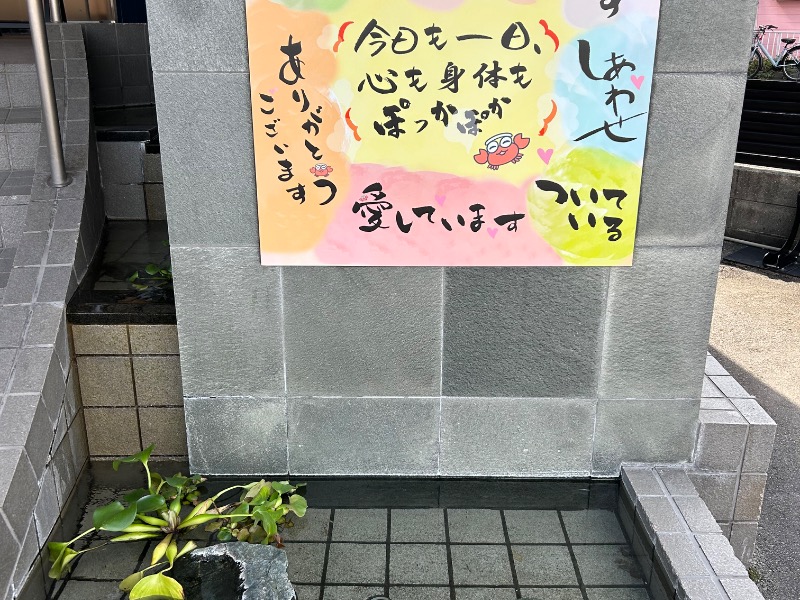 す
しあわせ
今日も一日、
心も身体も
ぽっかぽか
ありがとう
ございます
愛しています
ついて
いる